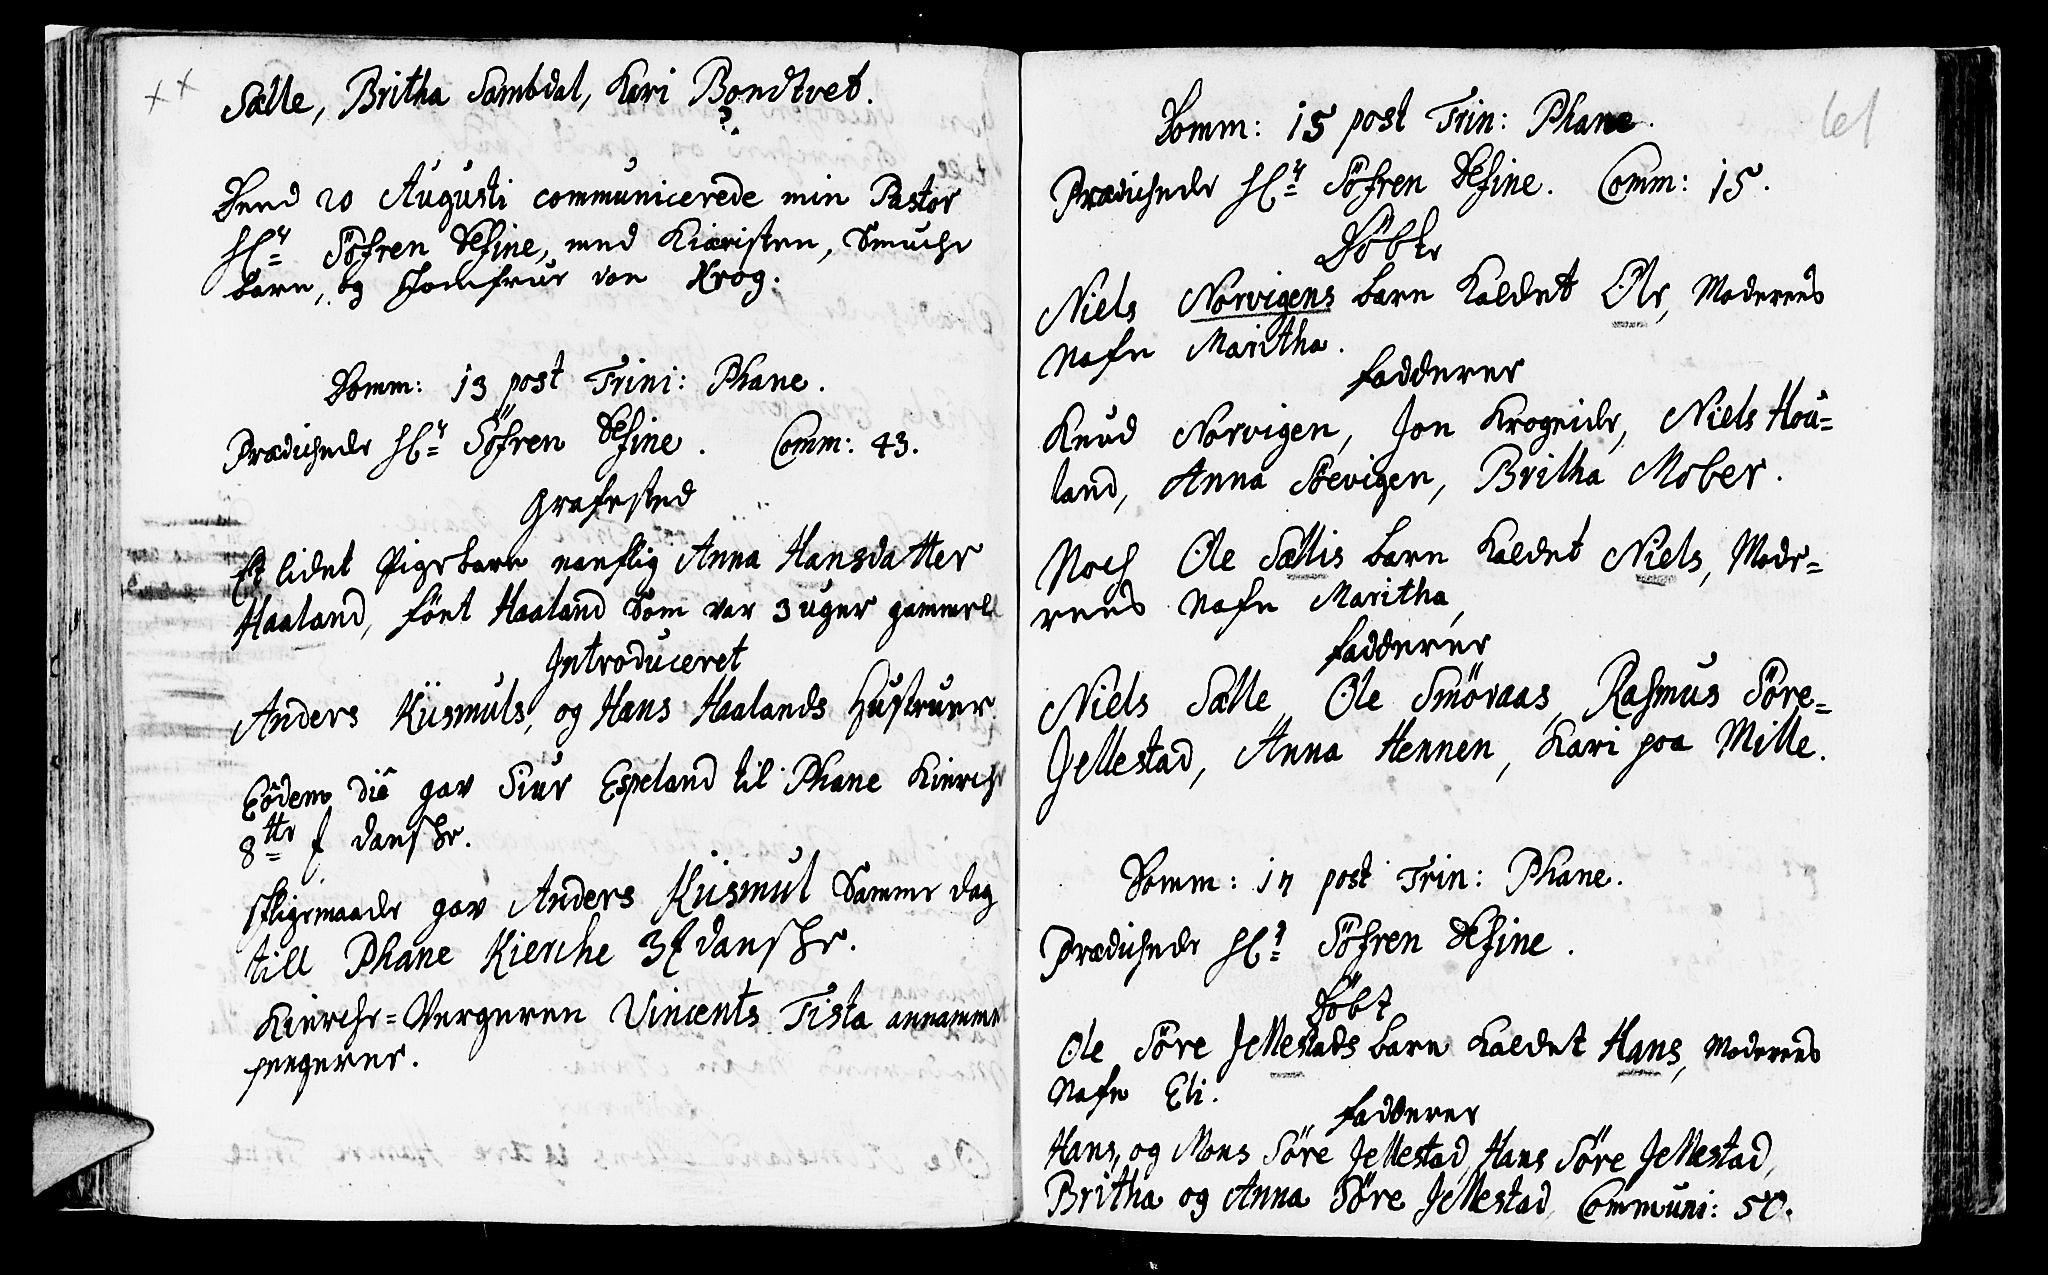 Sælle, Britha Sambdal, Kari Bondtvet.
Dend 20 Augusti communicerede min Pastor
Hr Söfren Define, med Kiæristen, Smuche
barn, og Jomfrue von Krog.
Domm: 13 post Trini: Phane.
Prædichede Hr Söfren Define. Comm: 43.
Grafested
Et lidet Pigebarn nanflig Anna Hansdatter
Haaland, föet Haaland som var 3 uger gammel
Introduceret
Anders Kiismuls, og Hans Haalands Hustruer
Eôdem diê gav Siur Espeland til Phane Kierche
8tte f danshe.
Ifligemaade gav Anders Kiismul Samme dag
till Phane Kierche 3 f danshe.
Kierche=Vergeren Vincents Tista annamme
pengerne.
61
Domm: 15 post Trin: Phane.
Prædichede Hr Söfren Define. Comm: 15.
Döbte
Niels Norvigens barn Kaldet Ole, Moderens
Nafn Maritha.
Fadderer
Knud Norvigen, Jon Krogeide, Niels Hou=
land, Anna Stevigen, Britha Mober.
Noch Ole Sællis barn Kaldet Niels, Mode=
rens Nafn Maritha,
Fadderer
Niels Sælle, Ole Smöraas, Rasmus Söre=
Jellestad, Anna Hennen, Kari paa Mille.
Domm: 17 post Trin: Phane.
Prædichede Hr Söfren Define.
Döbt
Ole Söre Jellestads barn Kaldet Hans, Moderens
Nafn Eli.
Fadderer
Hans, og Mons Söre Jellestad, Hans Söre Jellestad,
Britha og Anna Söre Jellestad Communi: 50.